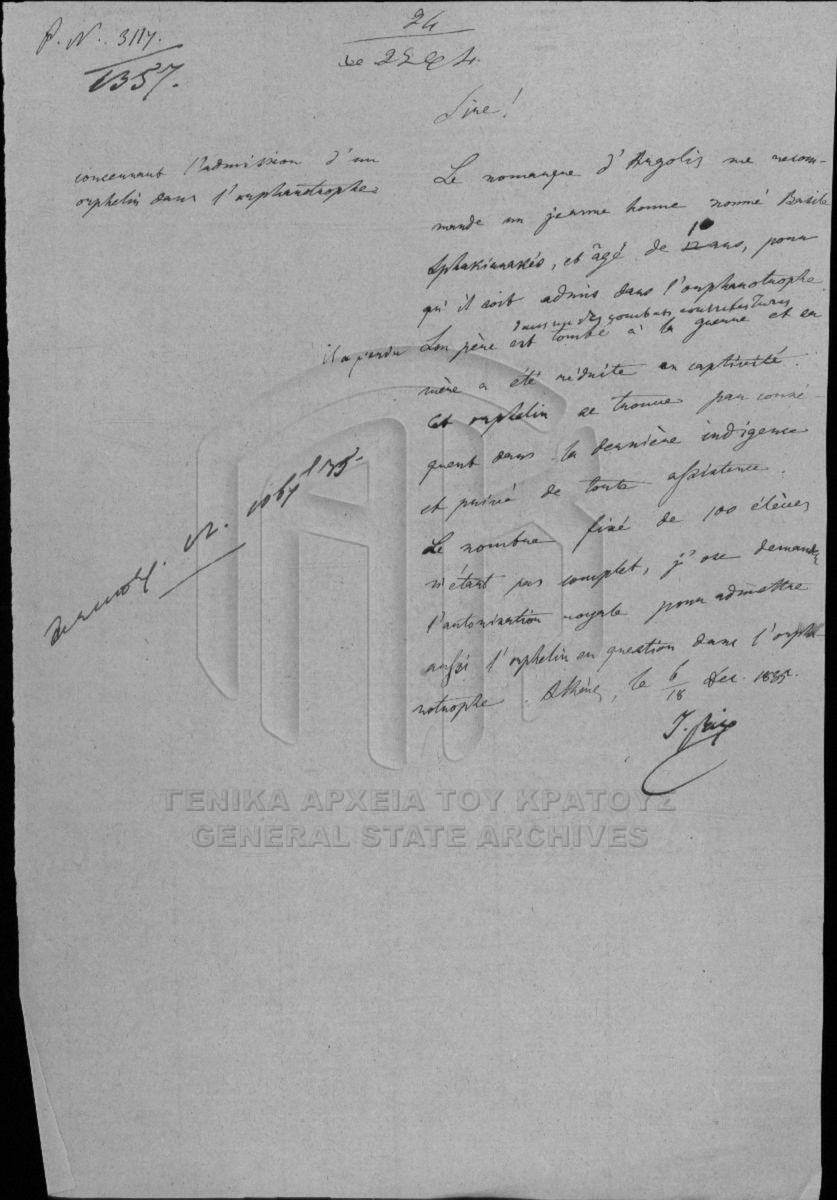 P. N. 3117.
1357.
24
Sire!
concernant l'admission d'un
orphelin dans l'orphanotrophe
Le nomarque d'Argolis me recom-
mande un jeune homme nommé Basile
Sphakianakés, et âgé de 12 10 ans, pour
qu'il soit admis dans l'orphanotrophe.
dans un des combats
il a perdu Son père est tombé à la guerre et sa
mère a été réduite en captivité.
Cet orphelin se trouve par consé-
quent dans la dernière indigence
et privé de toute assistence.
Le nombre fixé de 100 élèves
n'étant pas complet, j'ose demander
l'autorisation royale pour admettre
aussi l'orphelin en question dans l'orpha-
notrophe. Athènes, le 6/18 Dec. 1835.
ΓΕΝΙΚΑ ΑΡΧΕΙΑ ΤΟΥ ΚΡΑΤΟΥΣ
GENERAL STATE ARCHIVES